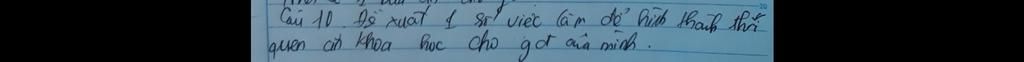 Câu 10. Đề xuất 1 số việc làm để hình thành thói
quen ăn khoa học cho gđ của mình.